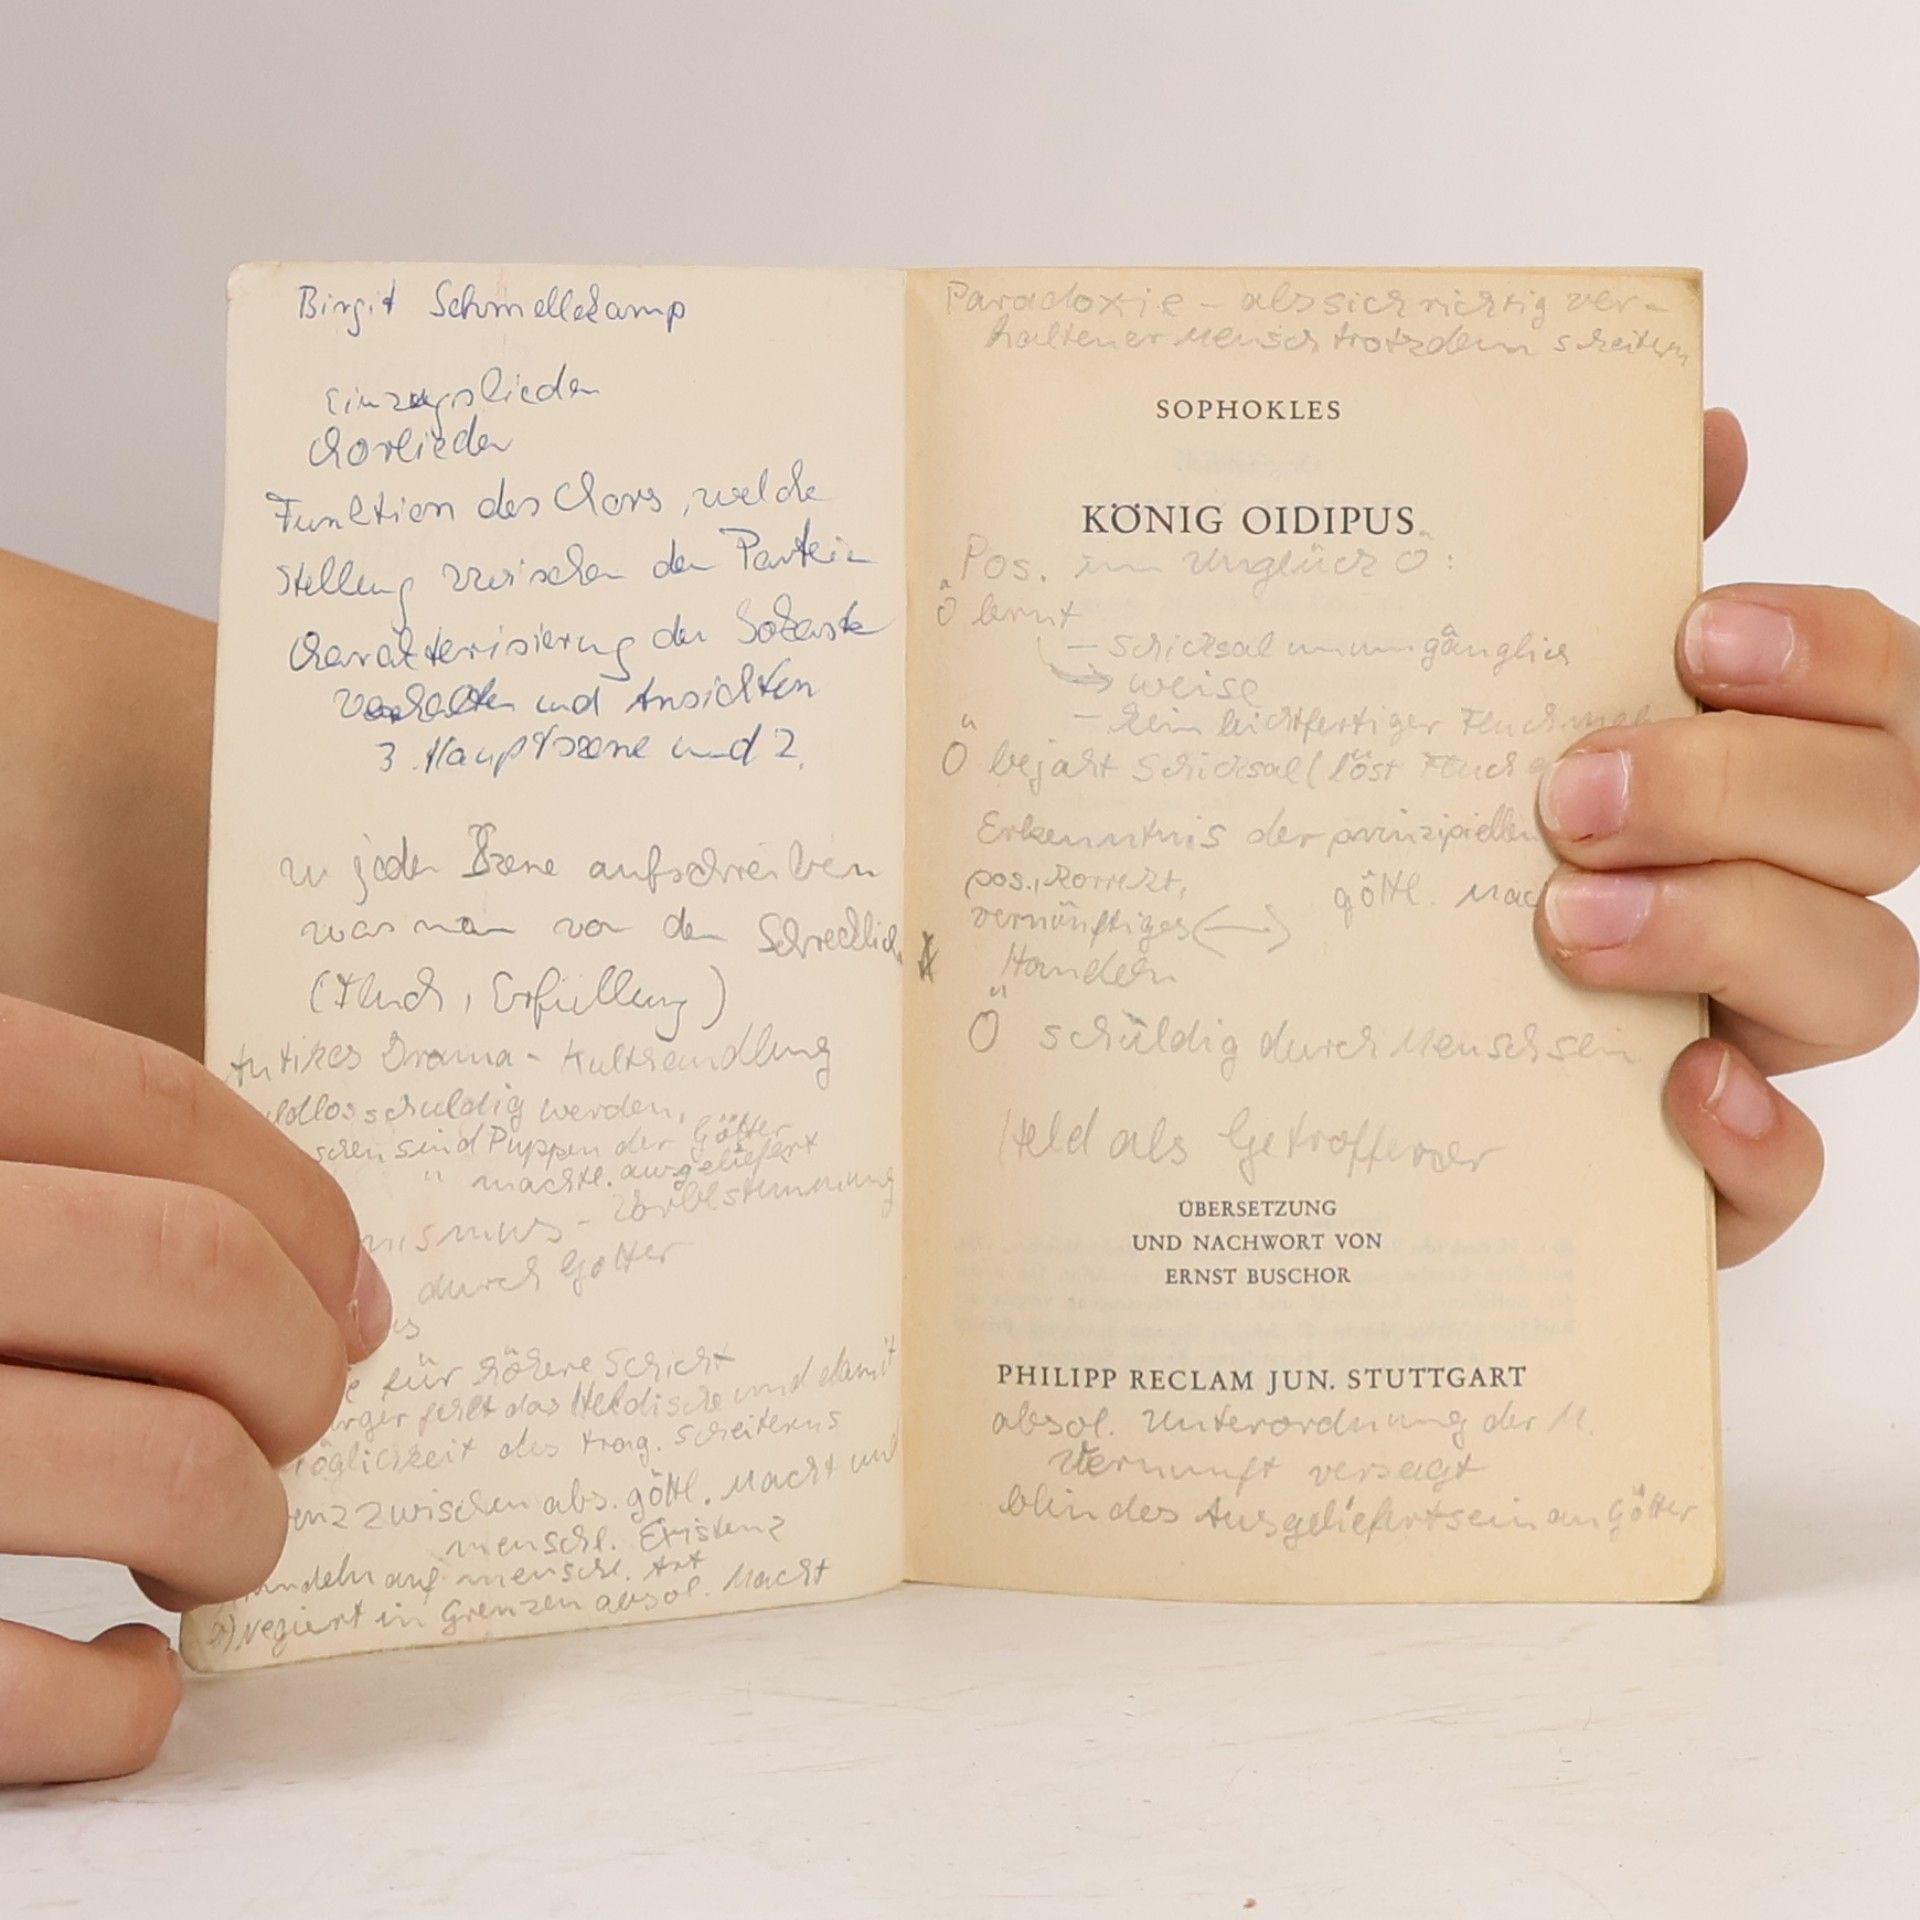 Birgit Schmellekamp
Einzugslieder
Chorlieder
Funktion des Chors, welche
Stellung zwischen den Partein
Charakterisierung der Iokaste
Verhalten und Ansichten
3. Hauptszene und 2.
zu jeder Szene aufschreiben
was man von dem Schrecklich
(Fluch, Erfüllung)
Antikes Drama - Kulthandlung
schuldig werden,
sind Puppen der Götter
" machtl. ausgeliefert
- Vorbestimmung
durch Götter
für höhere Schicht
fehlt das Heldische und damit
des trag. Scheiterns
zwischen abs. göttl. Macht und
menschl. Existenz
auf menschl. Art
negiert in Grenzen absol. Macht
Paradoxie - als sich richtig ver-
haltener Mensch trotzdem scheitern
SOPHOKLES
KÖNIG OIDIPUS
Pos. im Unglück Ö:
Ö lernt
- Schicksal unumgänglich
→ weise
- kein leichtfertiger Fluch
Ö bejaht Schicksal (löst Fluch
Erkenntnis der prinzipiellen
pos., korrekt, göttl.
vernünftiges <—>
Handeln
Ö schuldig durch Menschsein
Held als Getroffener
ÜBERSETZUNG
UND NACHWORT VON
ERNST BUSCHOR
PHILIPP RECLAM JUN. STUTTGART
absol. Unterordnung der M.
Vernunft versagt
blindes Ausgeliefertsein an Götter